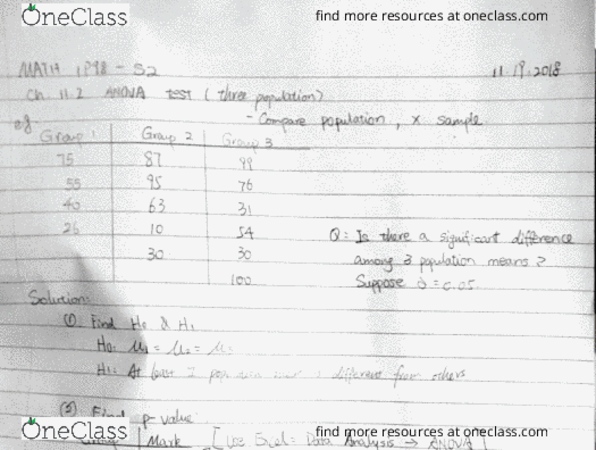 OneClass find more resources at oneclass.com
MATH 1P98 - S2 11.19.2018
Ch. 11.2 ANOVA test (three population)
- Compare population, x sample
eg
Group 1 Group 2 Group 3
75 87 99
55 95 76
40 63 31
26 10 54
30 30
100
Q: Is there a significant difference
among 3 population means?
Suppose = 0.05.
Solution:
① Find H0 & H1
H0: μ1 = μ2 = μ3
H1: At least different from others
② Find p-value
Mark [Use Excel: Data Analysis → ANOVA]
OneClass find more resources at oneclass.com